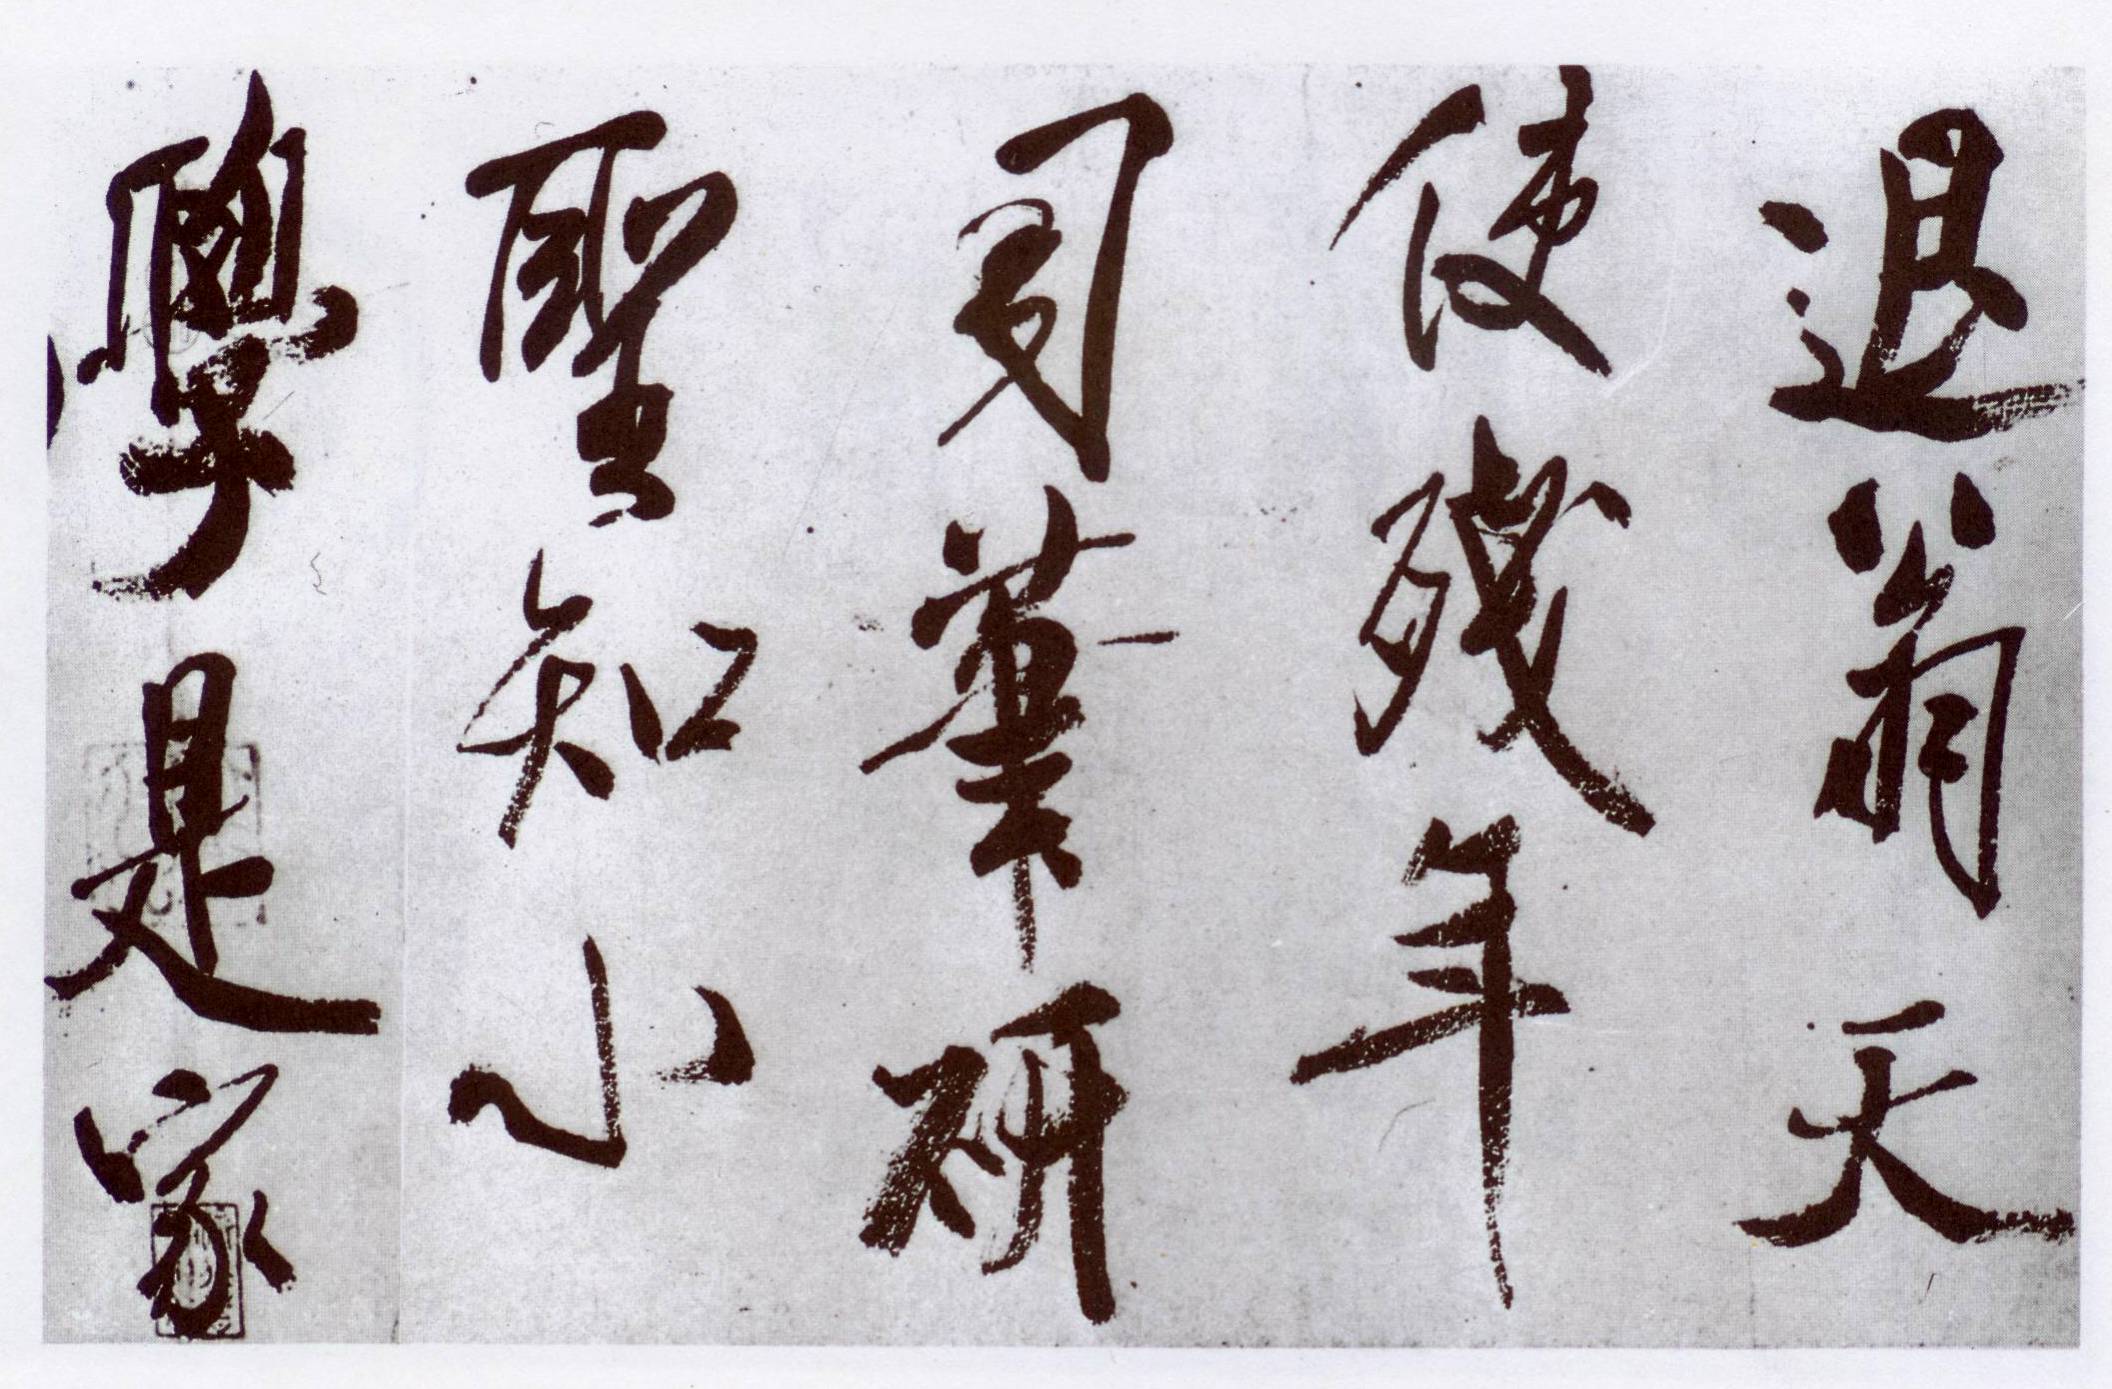 退翁天
使殘年
司筆研
聖知小
學是家